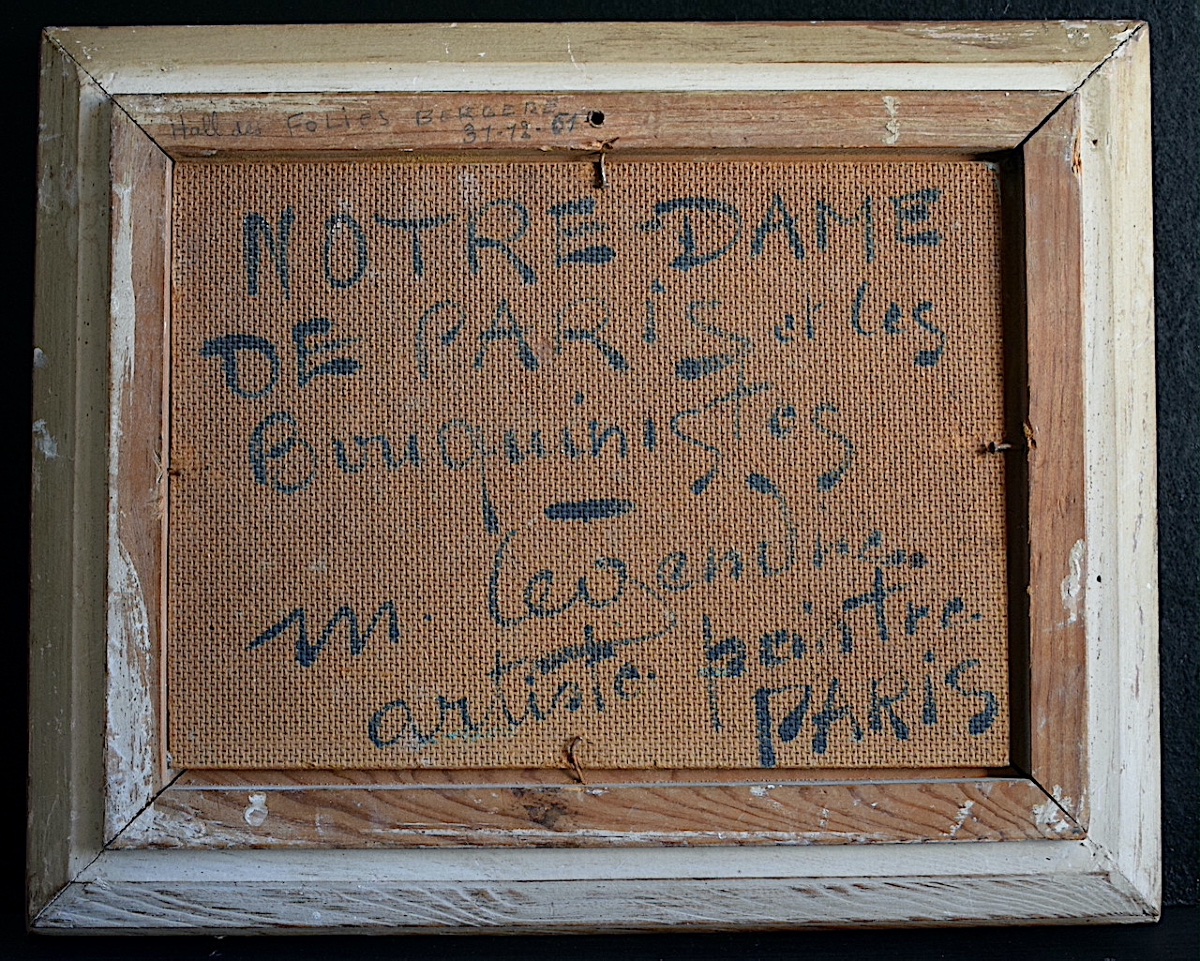 Hall des FOLIES BERGERE
31-12-61
NOTRE DAME
DE PARIS et les
Bouquinistes
—
M. Legendre
artiste peintre
PARIS